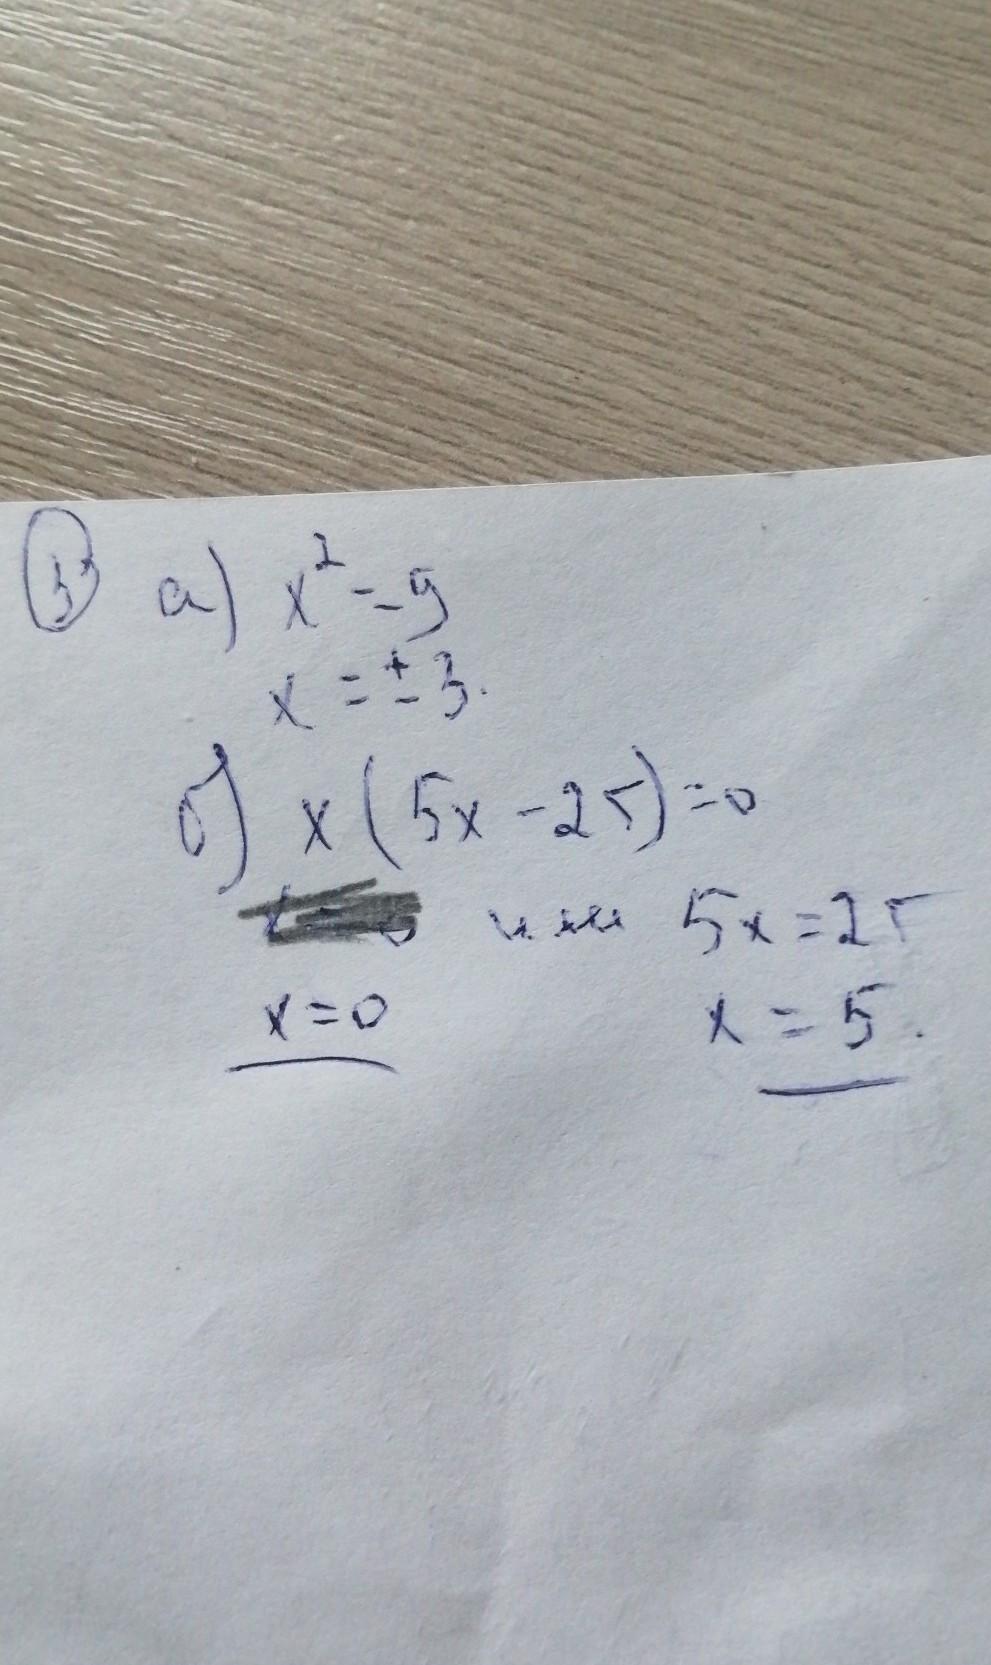 3 а) x² = 9
x = ± 3.
б) x(5x - 25) = 0
или 5x = 25
x = 0 x = 5.